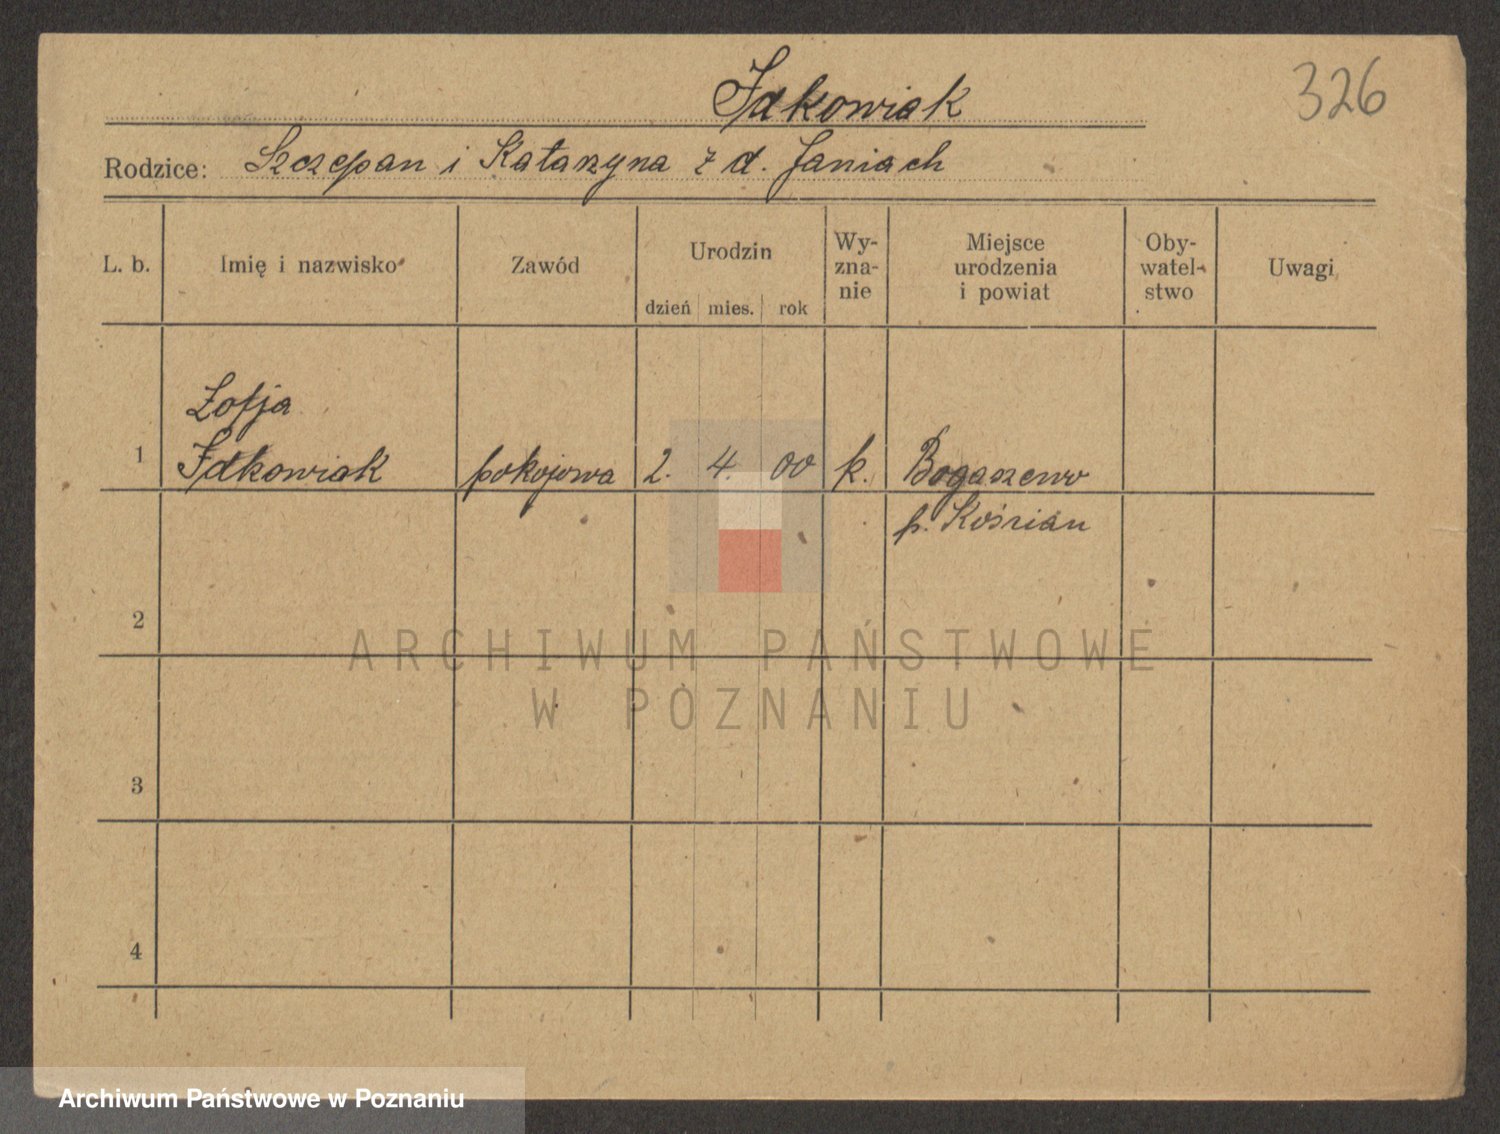 Idkowiak
326
Rodzice: Szczepan i Katarzyna z d. Janiach
L. b.
Imię i nazwisko
Zawód
Urodzin
dzień mies. rok
Wy-
zna-
nie
Miejsce
urodzenia
i powiat
Oby-
watel-
stwo
Uwagi
Zofja
1 Idkowiak pokojowa 2. 4. 00 k. Bogaszewo
p. Kośzian
2
3
4
ARCHIWUM PAŃSTWOWE
W POZNANIU
Archiwum Państwowe w Poznaniu